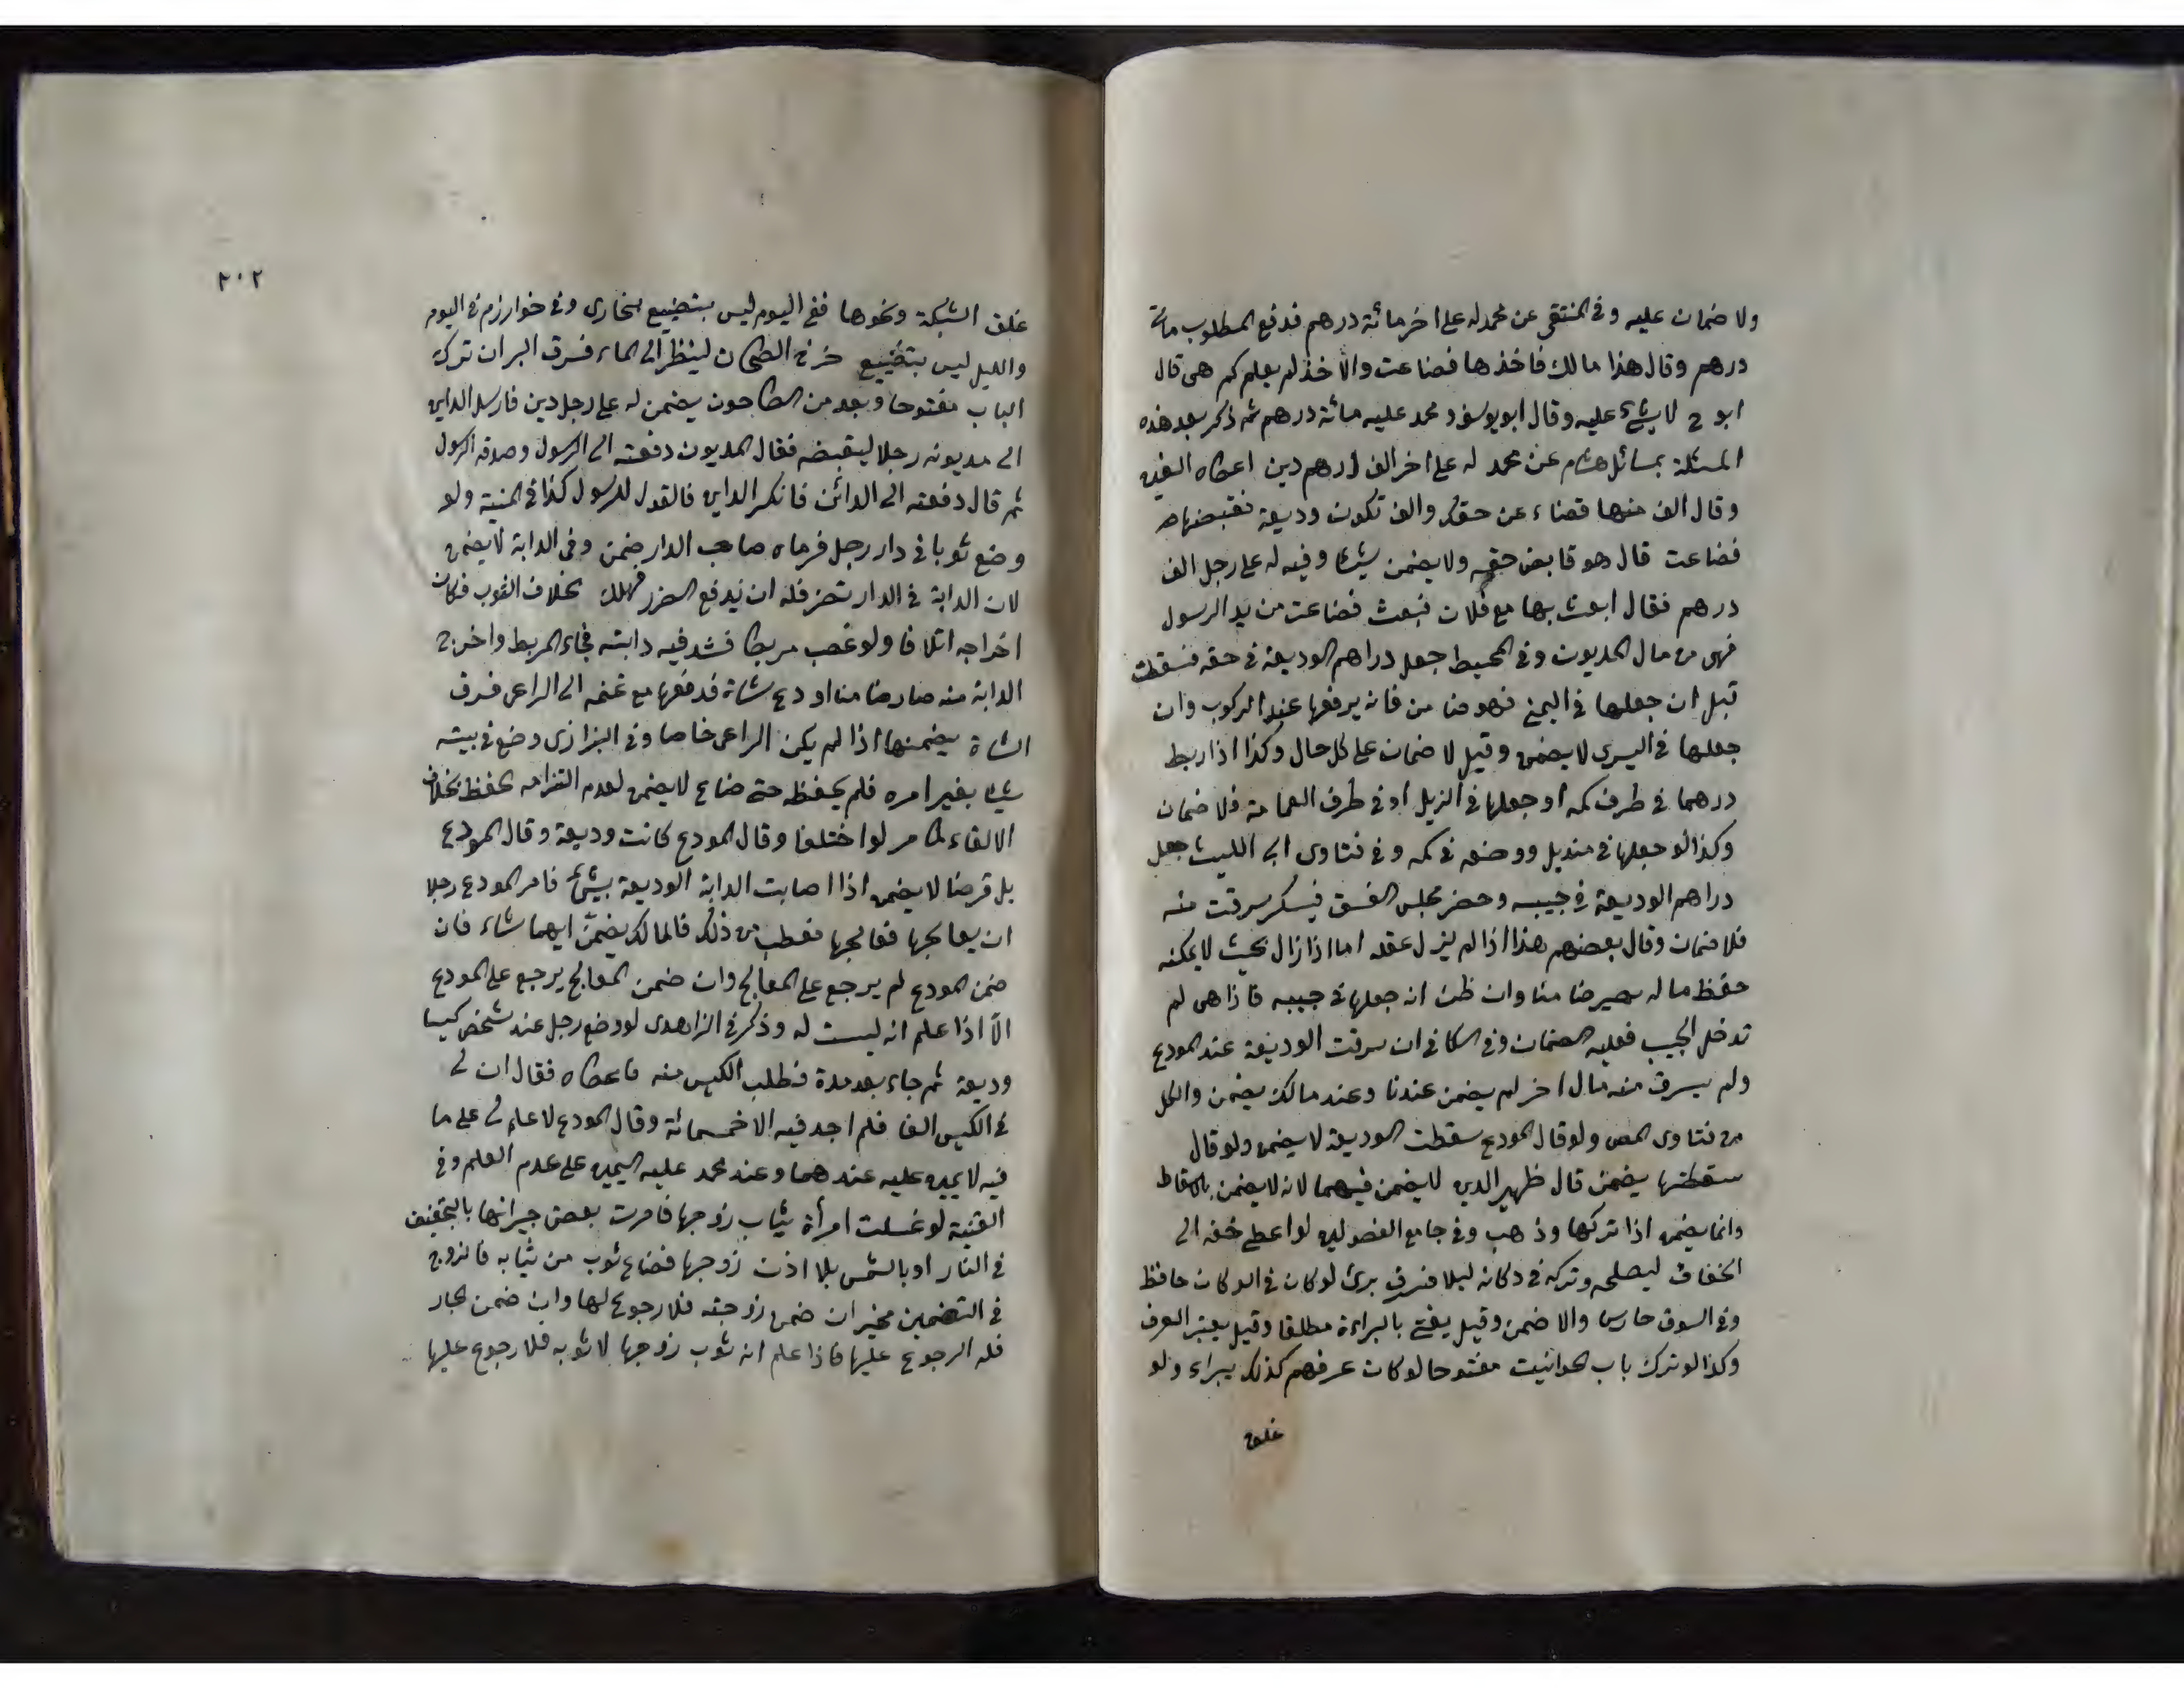 ولا ضمان عليه وفي المنتقى عن محمد له على اخر مائة درهم فدفع المطلوب مائة
درهم وقال هذا مالك فاخذها فضاعت والاخذ لم يعلم كم هى قال
ابو ح لا شئ عليه وقال ابو يوسف ومحمد عليه مائة درهم ثم ذكر بعد هذه
المسئلة بمسائل هشام عن محمد له على اخر الف درهم دين اعطاه الفين
وقال الف منها قضاء عن حقك والف تكون وديعة فقبضها
فضاعت قال هو قابض حقه ولا يضمن شيئا وفيه له على رجل الف
درهم فقال ابعث بها مع فلان فبعث فضاعت من يد الرسول
فهى من مال المديون وفي المحيط جعل دراهم الوديعة في خفه فسقطت
قبل ان جعلها في اليمنى فهو ضامن فانه يرفعها عند الركوب وان
جعلها في اليسرى لا يضمن وقيل لا ضمان على كل حال وكذا اذا ربط
درهما في طرف كمه او جعلها في الزيل او في طرف العمامة فلا ضمان
وكذا لو جعلها في منديل ووضعه في كمه وفي فتاوى ابى الليث جعل
دراهم الوديعة في جيبه وحضر مجلس الفسق فيسكر سرقت منه
فلا ضمان وقال بعضهم هذا اذا لم يزل عقله اما اذا زال بحيث لا يمكنه
حفظ ماله يصير ضامنا وان ظن انه جعلها في جيبه فاذا هى لم
تدخل الجيب فعليه الضمان وفي الكافى ان سرقت الوديعة عند المودع
ولم يسرق منه مال اخر لم يضمن عندنا وعند مالك يضمن والكل
من فتاوى المص ولو قال المودع سقطت الوديعة لا يضمن ولو قال
سقطتها يضمن قال ظهير الدين لا يضمن فيهما لانه لا يضمن بالاسقاط
وانما يضمن اذا تركها وذهب وفي جامع الفصولين لو اعطى خفه الى
الخفاف ليصلحه وتركه في دكانه ليلا فسرق برئ لو كان في الدكان حافظ
وفي السوق حارس والا ضمن وقيل يفتى بالبراءة مطلقا وقيل يعتبر العرف
وكذا لو ترك باب الحوانيت مفتوحا لو كان عرفهم كذلك يبراء ولو
غلق
٢٠٢
غلق الشبكة ونحوها ففى اليوم ليس بتضييع بخارى وفي خوارزم في اليوم
والليل ليس بتضييع خرج الطحان لينظر الى الماء فسرق البر ان ترك
الباب مفتوحا وبعد من الطاحون يضمن له على رجل دين فارسل الداين
الى مديونه رجلا ليقبضه فقال المديون دفعته الى الرسول وصدقه الرسول
ثم قال دفعته الى الدائن فانكر الداين فالقول للرسول كذا في المنية ولو
وضع ثوبا في دار رجل فرماه صاحب الدار ضمن وفي الدابة لا يضمن
لان الدابة في الدار تضر فله ان يدفع الضرر فهلك بخلاف الثوب فكان
اخراجه اتلافا ولو غصب مربطا فشد فيه دابته فجاء المربط واخرج
الدابة منه صار ضامنا اودع شاة فدفعها مع غنمه الى الراعى فسرق
الشاة يضمنها اذا لم يكن الراعى خاصا وفي البزازى وضع في بيته
شيئا بغير امره فلم يحفظه حتى ضاع لا يضمن لعدم التزامه بحفظ بخلاف
الالقاء كما مر لو اختلفا وقال المودع كانت وديعة وقال المودع
بل قرضا لا يضمن اذا اصابت الدابة الوديعة بشئ فامر المودع رجلا
ان يعالجها فعالجها فعطب من ذلك فالمالك يضمن ايهما شاء فان
ضمن المودع لم يرجع على المعالج وان ضمن المعالج يرجع على المودع
الا اذا علم انه ليست له وذكر في الزاهدى لو وضع رجل عند شخص كيسا
وديعة ثم جاء بعد مدة فطلب الكيس منه فاعطاه فقال ان لى
في الكيس الفا فلم اجد فيه الا خمسمائة وقال المودع لا علم لى على ما
فيه لا يمين عليه عندهما وعند محمد عليه اليمين على عدم العلم وفي
القنية لو غسلت امرأة ثياب زوجها فامرت بعض جيرانها بالتجفيف
في النار او بالشمس بلا اذن زوجها فضاع ثوب من ثيابه فالزوج
في التضمين مخير ان ضمن زوجته فلا رجوع لها وان ضمن الجار
فله الرجوع عليها فاذا علم انه ثوب زوجها لا ثوبه فلا رجوع عليها